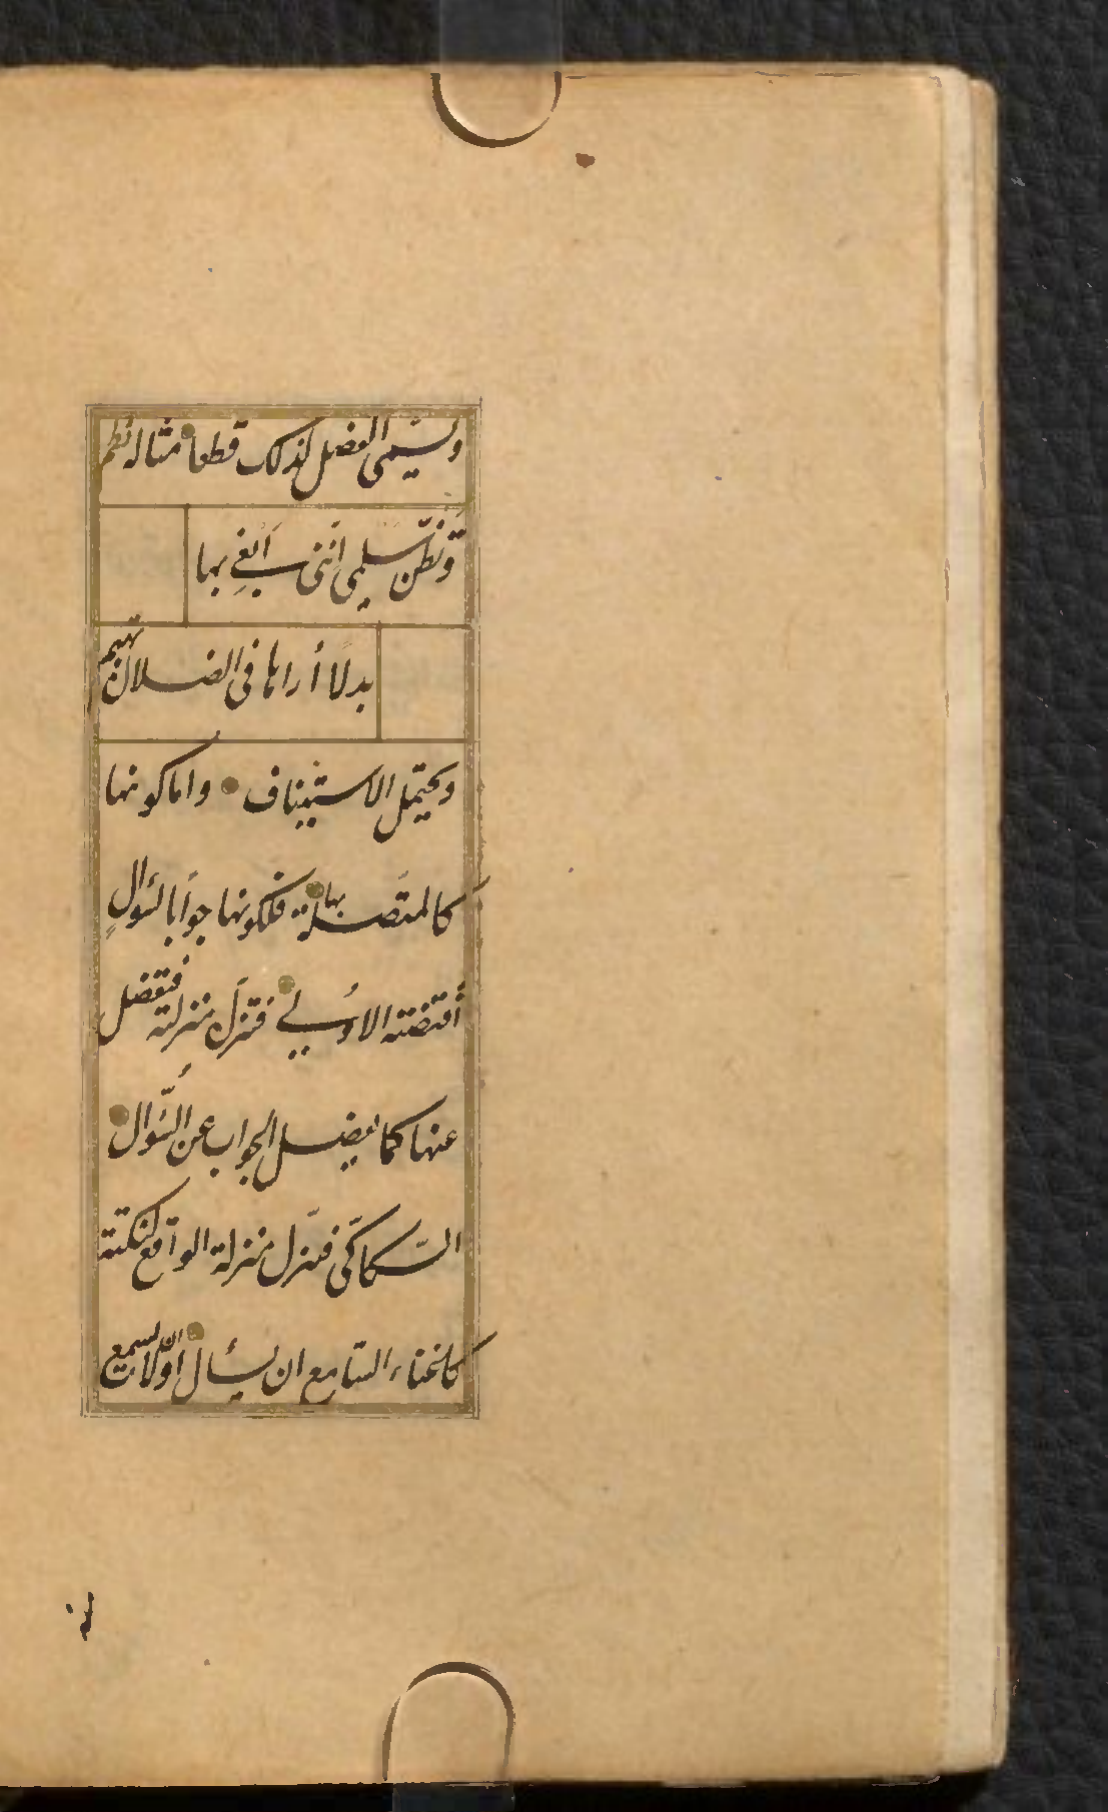 ويسمى الفصل لذلك قطعا مثاله نظم
وتظن سلمى انني أبغي بها
بدلا أراها في الضلال تهيم
ويحتمل الاستيناف واما كونها
كالمتصلة بها فلكونها جوابا لسؤال
أقتضته الاولى فتنزل منزلته فتفصل
عنها كما يفصل الجواب عن السؤال
السكاكي فينزل منزلة الواقع لنكتة
كاغناء السامع ان يسأل اولا ان لا يسمع